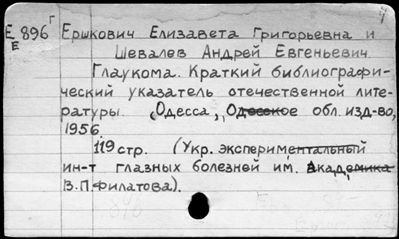 Е 896 Г
Е
Ершкович Елизавета Григорьевна и
Шевалев Андрей Евгеньевич
Глаукома. Краткий библиографи-
ческий указатель отечественной лите-
ратуры. Одесса, Одесское обл. изд-во,
1956
119 стр. (Укр. экспериментальный
ин-т глазных болезней им. Академика
В.П. Филатова).